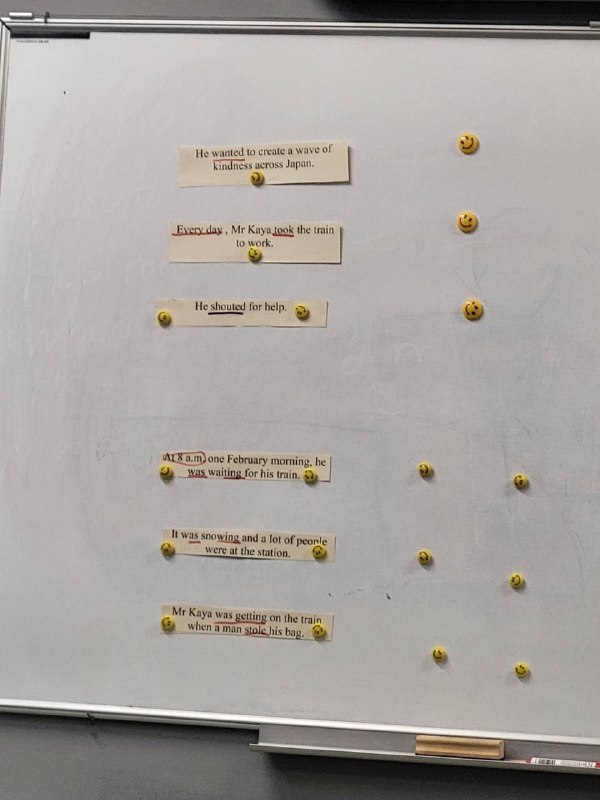 He wanted to create a wave of
kindness across Japan.
Every day , Mr Kaya took the train
to work.
He shouted for help.
At 8 a.m. one February morning, he
was waiting for his train.
It was snowing and a lot of people
were at the station.
Mr Kaya was getting on the train
when a man stole his bag.